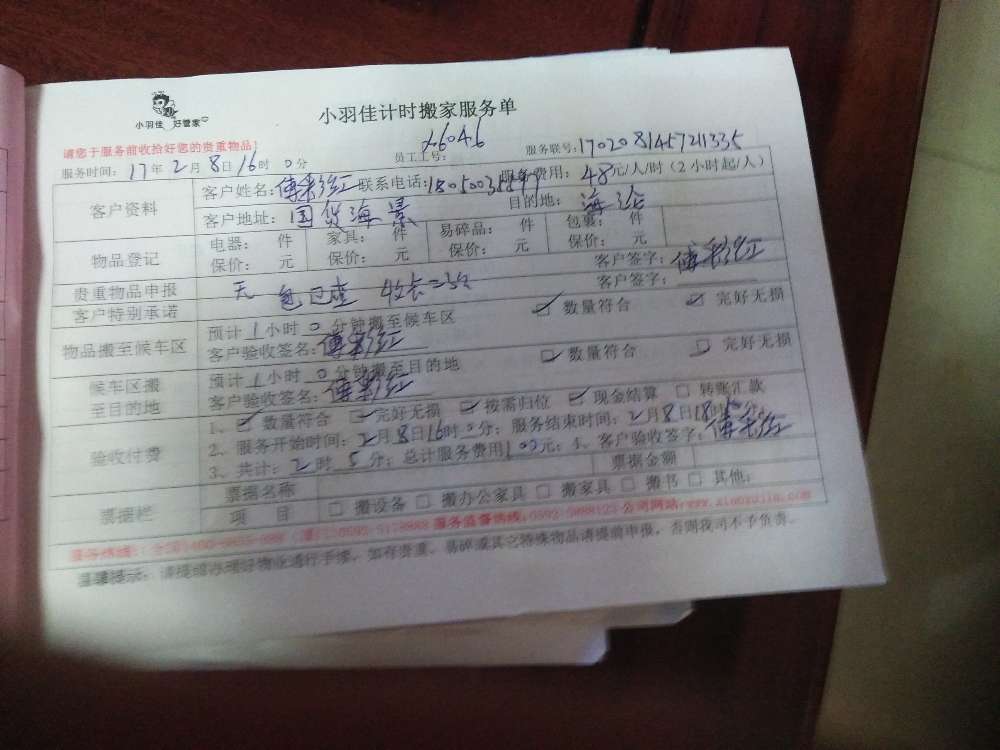 小羽佳 好管家
小羽佳计时搬家服务单
请您于服务前收拾好您的贵重物品!
服务时间: 17年2月8日16时0分 员工工号: x6046 服务联号: 1702081457211335
客户资料 客户姓名: 傅彩红 联系电话: 服务费用: 48元/人/时 (2小时起/人)
客户地址: 国贸海景 目的地: 海沧
物品登记 电器: 件 家具: 件 易碎品: 件 包裹: 件
保价: 元 保价: 元 保价: 元 保价: 元
贵重物品申报 无 客户签字: 傅彩红
客户特别承诺 客户签字:
物品搬至候车区 预计1小时0分钟搬至候车区 数量符合 完好无损
客户验收签名: 傅彩红
候车区搬至目的地 预计1小时0分钟搬至目的地 数量符合 完好无损
客户验收签名: 傅彩红
验收付费 1、 数量符合 完好无损 按需归位 现金结算 转账汇款
2、服务开始时间: 2月8日16时0分; 服务结束时间: 2月8日18时分
3、共计: 2时5分; 总计服务费用元; 4、客户验收签字: 傅彩红
票据栏 票据名称 票据金额
项目 搬设备 搬办公家具 搬家具 搬书 其他:
服务热线: 服务监督热线: 0592-5088123 公司网站: www.xiaoyujia.com
温馨提示: 请提前办理好物业通行手续, 如有贵重、易碎或其它特殊物品请提前申报, 否则我司不予负责。